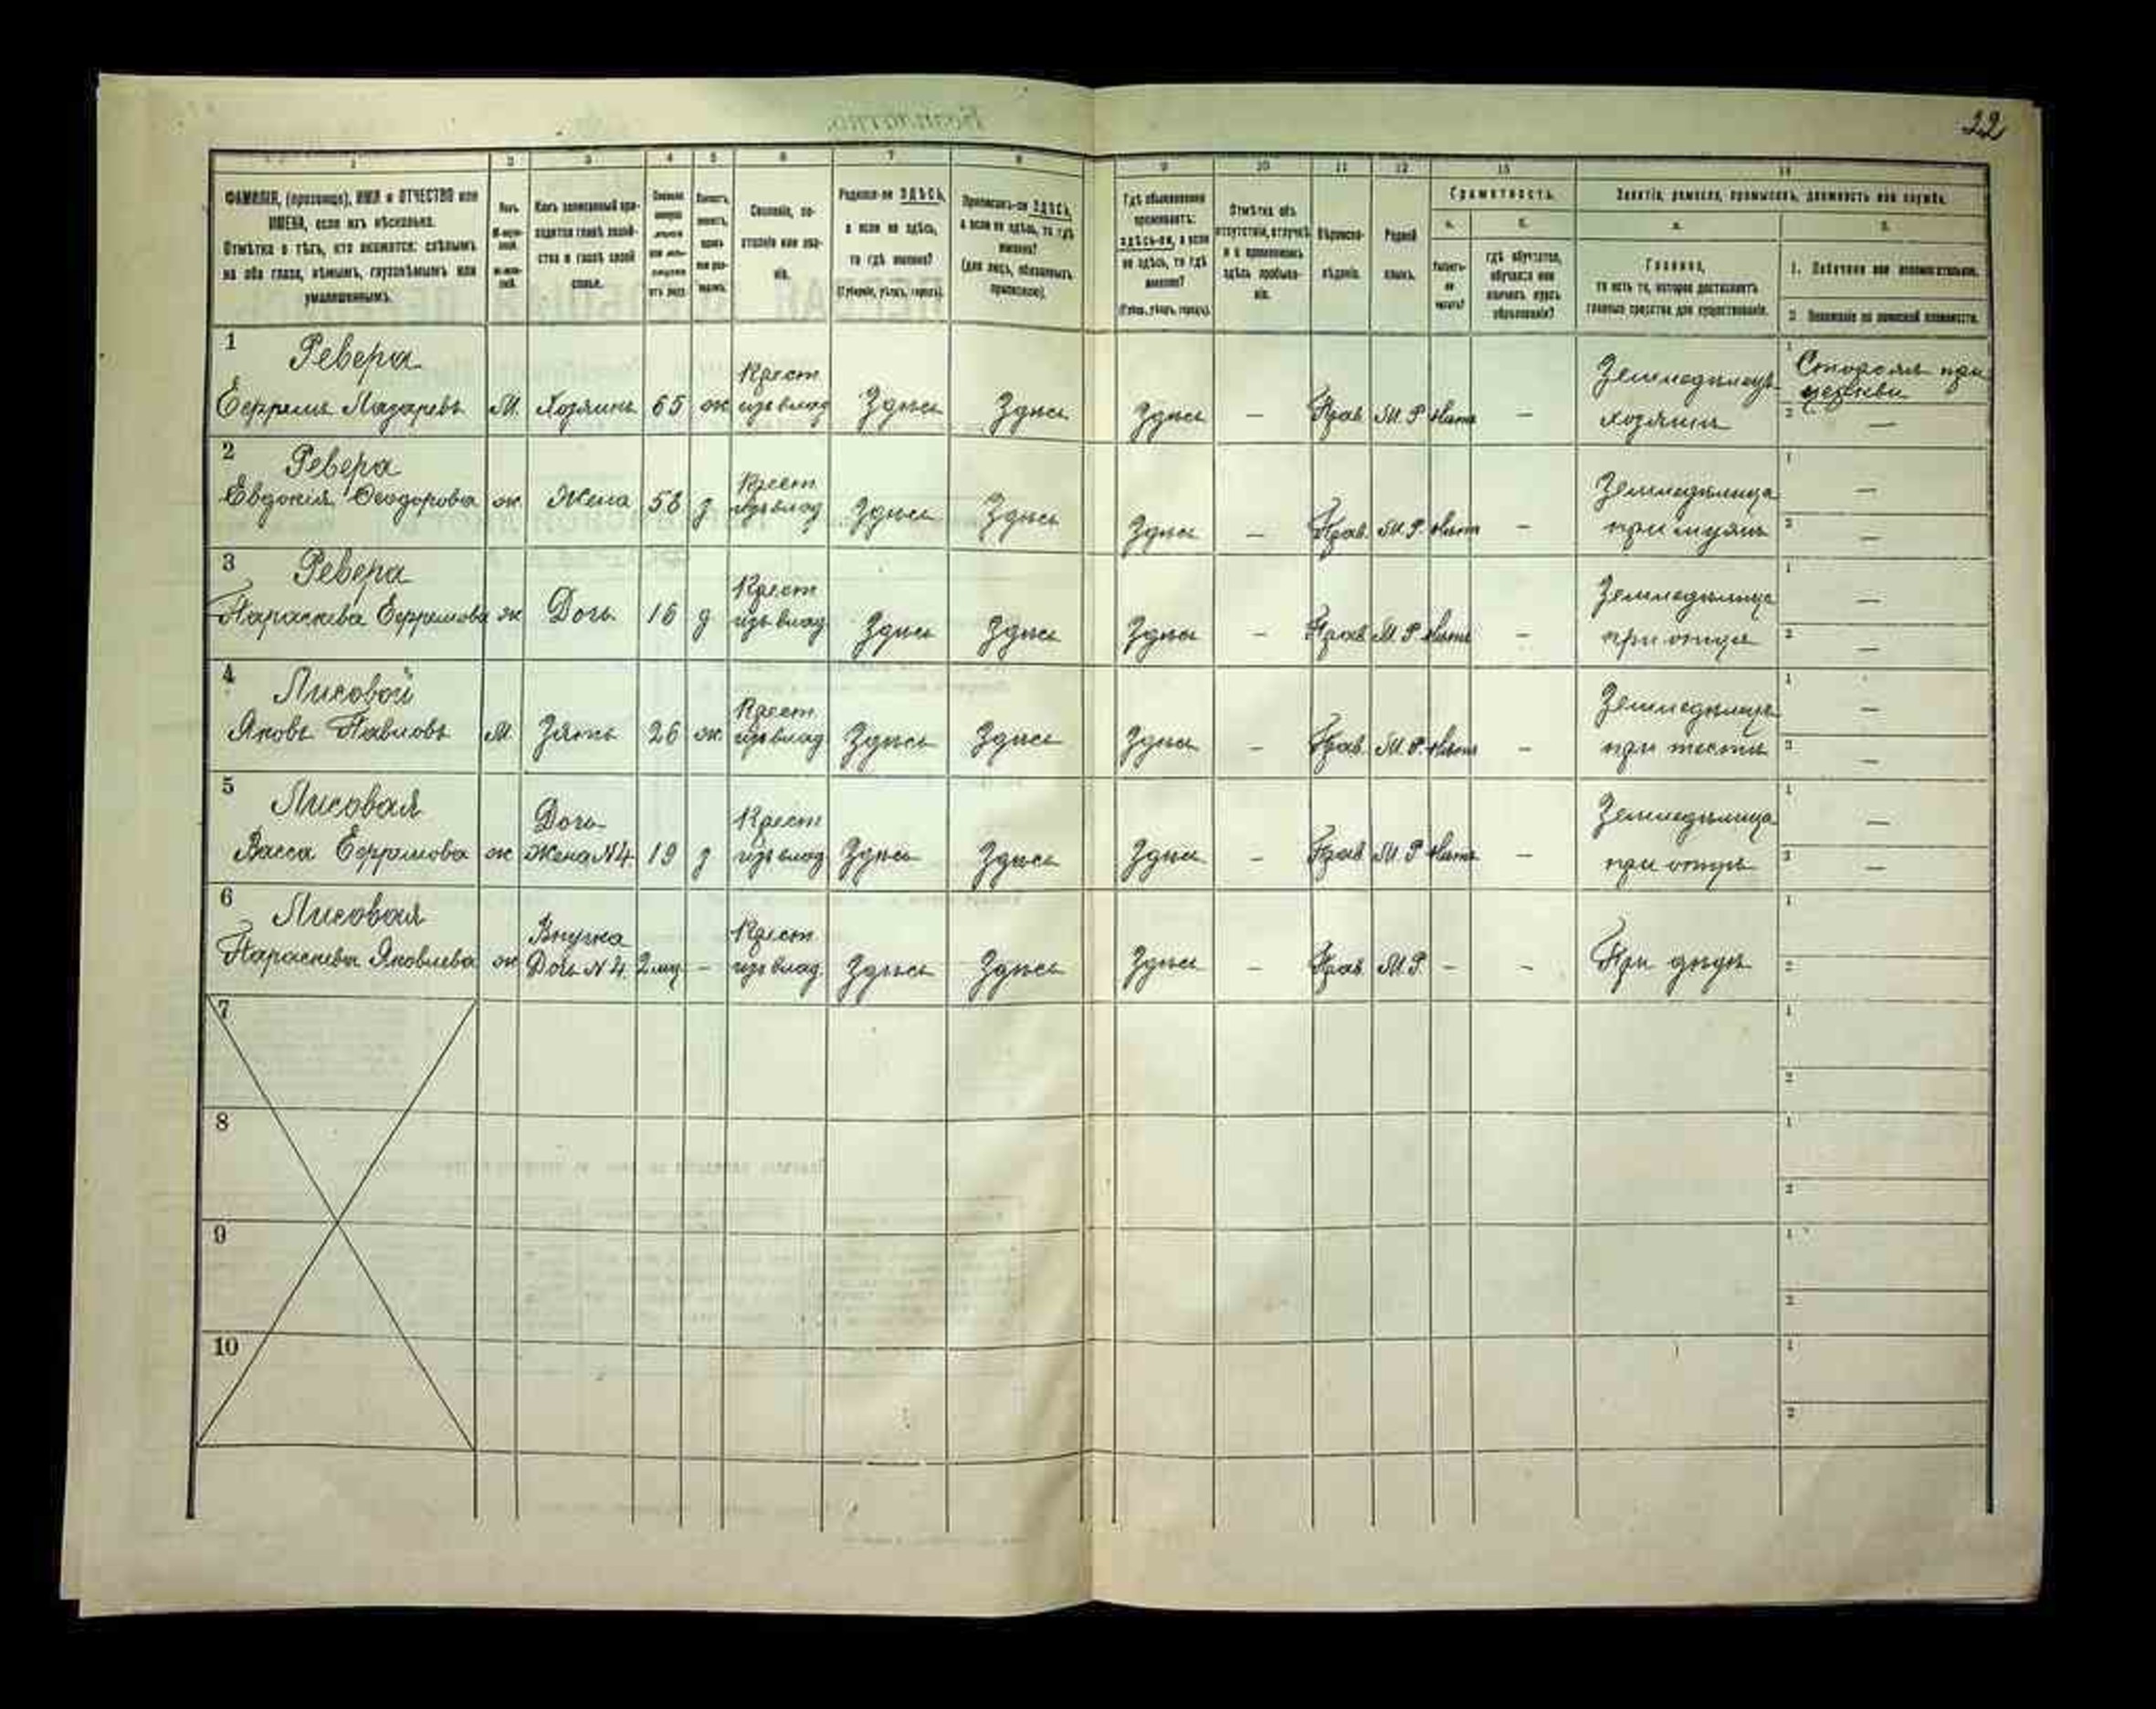 22
1 2 3 4 5 6 7 8 9 10 11 12 13 14
ФАМИЛІЯ, (прозвище), ИМЯ и ОТЧЕСТВО или
ИМЕНА, если ихъ нѣсколько.
Отмѣтка о тѣхъ, кто окажется: слѣпымъ
на оба глаза, нѣмымъ, глухонѣмымъ или
умалишеннымъ.
Какъ записанный при-
ходится главѣ хозяй-
ства и главѣ своей
семьи.
Сословіе, со-
стояніе или зва-
ніе.
Родился-ли ЗДѢСЬ,
а если не здѣсь,
то гдѣ именно?
(Губернія, уѣздъ, городъ).
Приписанъ-ли ЗДѢСЬ,
а если не здѣсь, то гдѣ
именно?
(для лицъ, обязанныхъ
припискою).
Гдѣ обыкновенно
проживаетъ:
здѣсь-ли, а если
не здѣсь, то гдѣ
именно?
(Губерн., уѣздъ, городъ).
Отмѣтка объ
отсутствіи, отлучкѣ
и о временномъ
здѣсь пребыва-
ніи.
Вѣроиспо-
вѣданіе.
Родной
языкъ.
Грамотность.
а. б.
Умѣетъ-
ли
читать?
гдѣ обучается,
обучался или
кончилъ курсъ
образованія?
Занятіе, ремесло, промыселъ, должность или служба.
а. б.
Главное,
то есть то, которое доставляетъ
главныя средства для существованія.
1. Побочное или вспомогательное.
2. Положеніе по воинской повинности.
1 Ревера Крест Земледѣлецъ 1 Сторожъ при
Ефремъ Лазаревъ М. Хозяинъ 65 ж изъ влад Здѣсь Здѣсь Здѣсь — Прав М.Р нѣтъ — хозяинъ церкви
2 —
2 Ревера Крест Земледѣлица 1 —
Евдокия Феодорова ж Жена 58 з изъ влад Здѣсь Здѣсь Здѣсь — Прав. М.Р. нѣтъ — при мужѣ 2 —
3 Ревера Крест Земледѣлица 1 —
Параскева Ефремова ж Дочь 16 д изъ влад Здѣсь Здѣсь Здѣсь — Прав М.Р нѣтъ — при отцѣ 2 —
4 Лисовой Крест Земледѣлецъ 1 —
Яковъ Павловъ М. Зять 26 ж изъ влад Здѣсь Здѣсь Здѣсь — Прав М.Р. нѣтъ — при тестѣ 2 —
5 Лисовая Дочь Крест Земледѣлица 1 —
Васса Ефремова ж Жена N4. 19 з изъ влад Здѣсь Здѣсь Здѣсь — Прав М.Р нѣтъ — при отцѣ 2 —
6 Лисовая Внучка Крест 1
Параскева Яковлева ж Дочь N4. 2 мц — изъ влад Здѣсь Здѣсь Здѣсь — Прав М.Р. — — При дѣдѣ 2
7 1
2
8 1
2
9 1
2
10 1
2